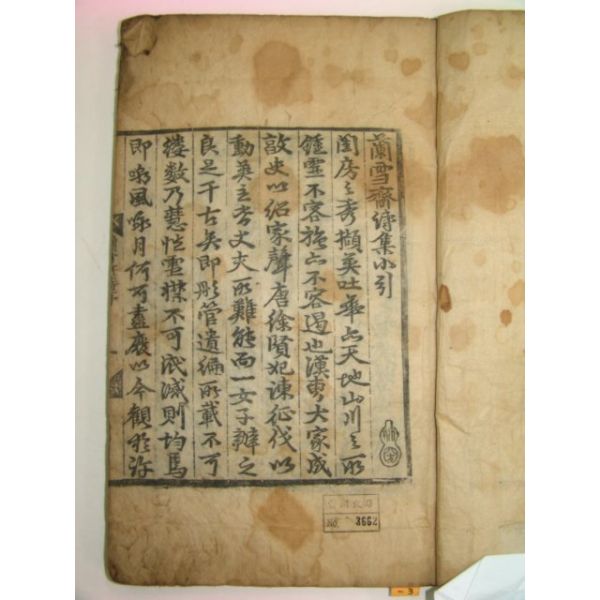 蘭雪齋詩集小引
閨房之秀擷英吐華亦天地山川之所
鍾靈不容強亦不容遏也漢曹大家成
敦史以紹家聲唐徐賢妃諫征伐以
動英主皆丈夫所難能而一女子辦之
良足千古矣即彤管遺編所載不可
縷數乃慧性靈襟不可泯滅則均焉
即嘲風咏月何可盡廢以今觀於許
No. 3652
-3